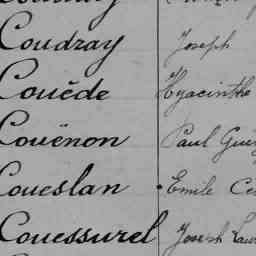 Coudray Joseph
Couëde Hyacinthe
Couënon Paul
Coueslan Emile
Couessurel Joseph